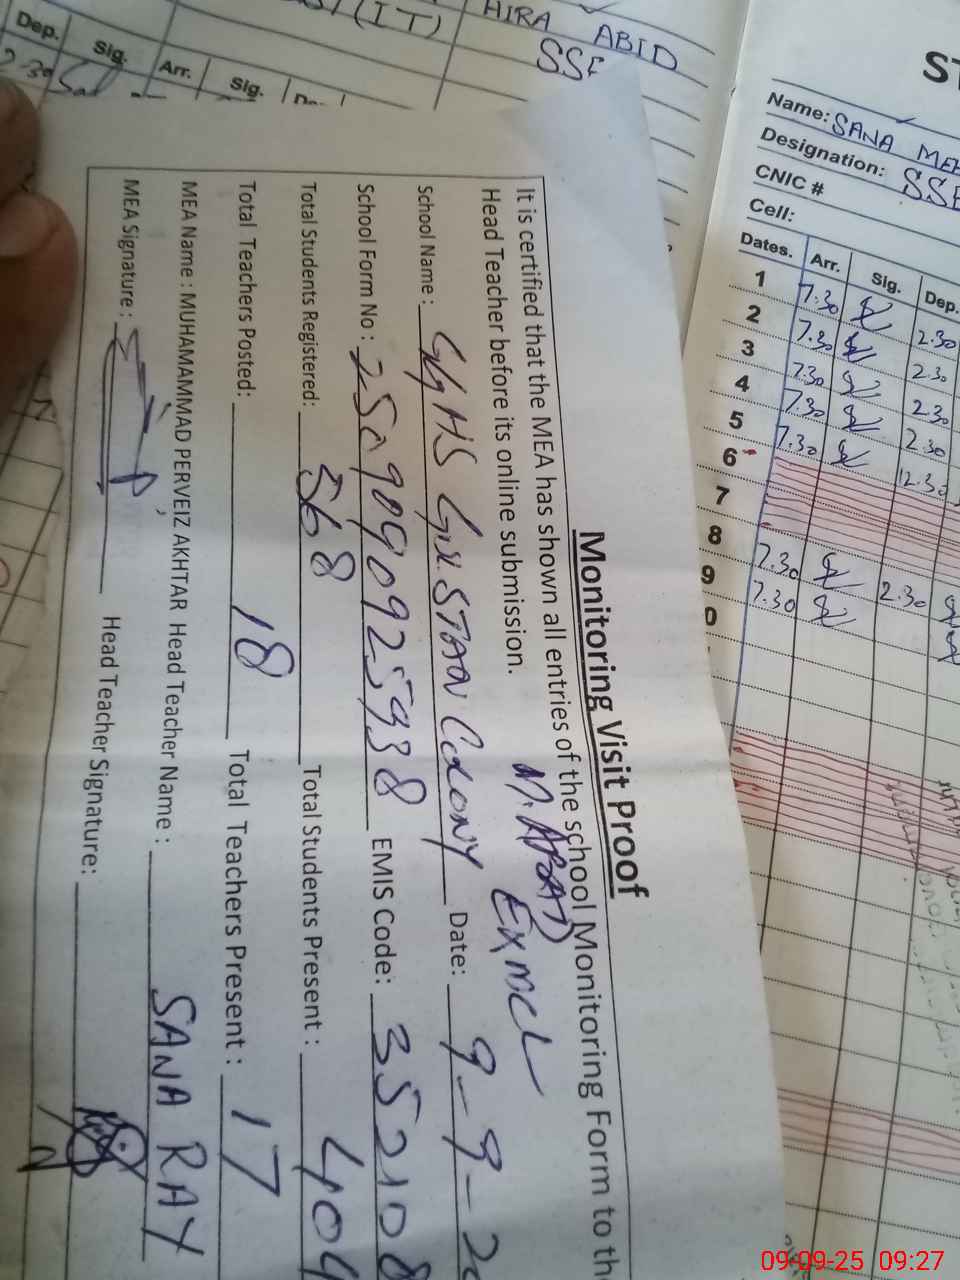 Monitoring Visit Proof
It is certified that the MEA has shown all entries of the school Monitoring Form to the
Head Teacher before its online submission. M. ABAD EX MCL
School Name: GGHS GULSTAN COLONY Date: 9-9-20
School Form No: EMIS Code: 352108
Total Students Registered: 568 Total Students Present: 404
Total Teachers Posted: 18 Total Teachers Present: 17
MEA Name: MUHAMAMMAD PERVEIZ AKHTAR Head Teacher Name: SANA RAY
MEA Signature: Head Teacher Signature:
(IT) HIRA ABID
SSE
Dep. Sig. Arr. Sig.
2.30
ST
Name: SANA MEH
Designation: SSE
CNIC #
Cell:
Dates. Arr. Sig. Dep.
1 7.30 2.30
2 7.30 2.30
3 7.30 2.30
4 7.30 2.30
5 7.30 12.30
6
7
8 7.30 2.30
9 7.30
0
09-09-25 09:27